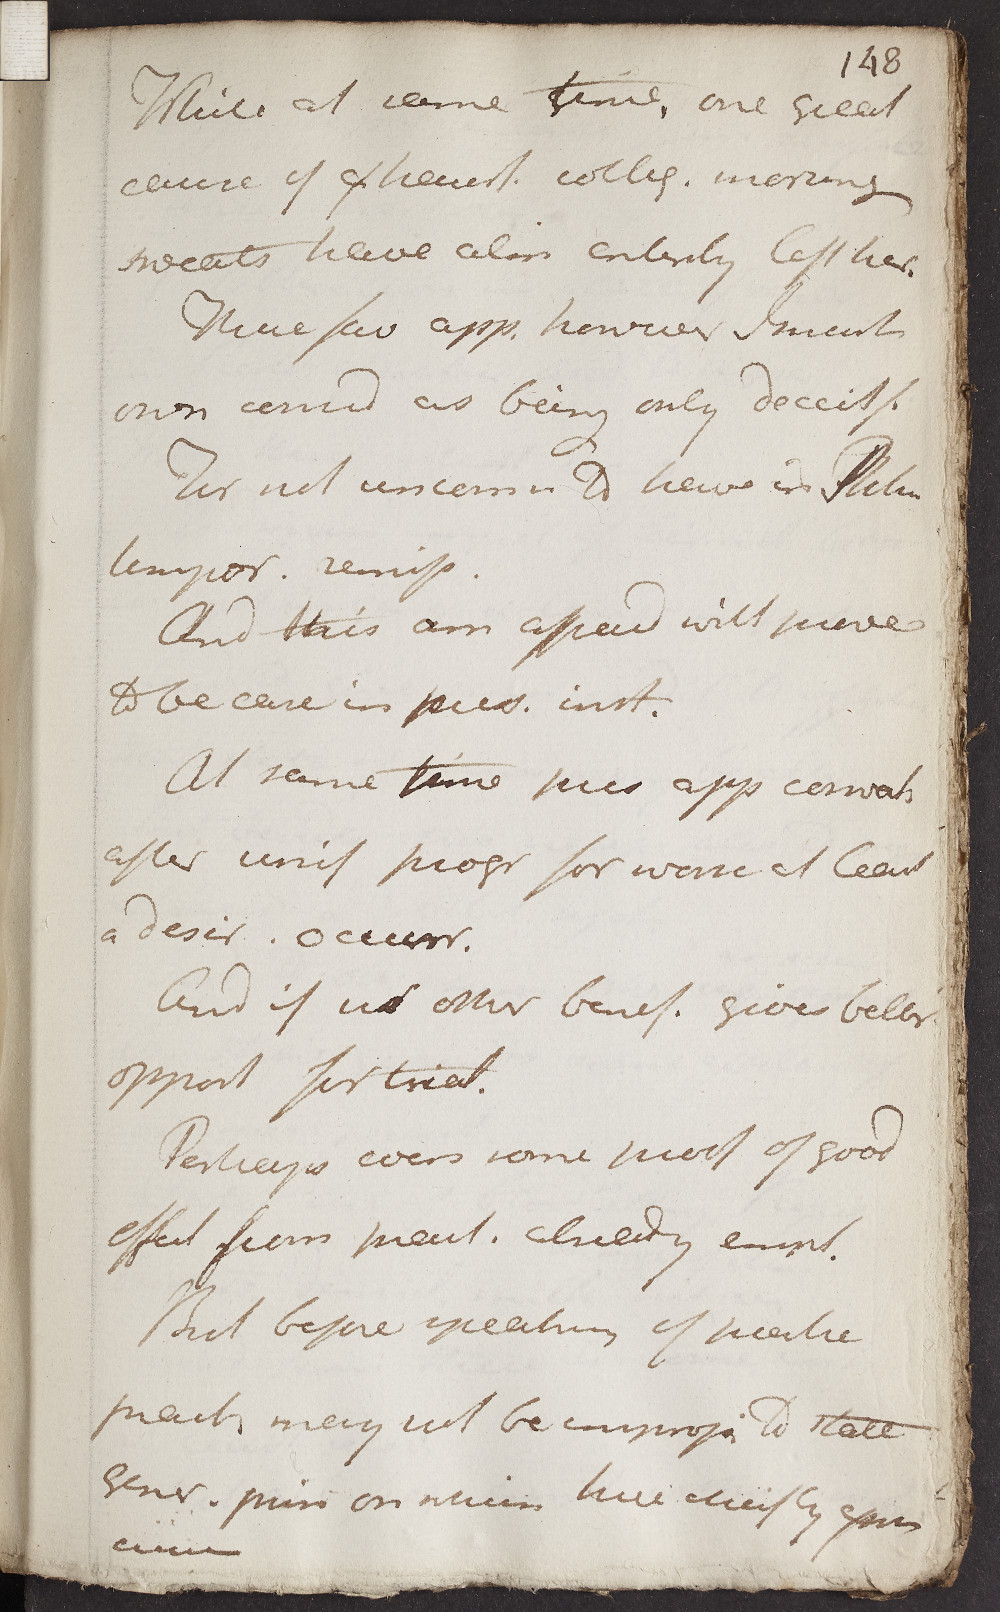 148
While at same time, one great
cause of exhaust. colliq. morning
sweats have also entirely left her.
These fav app. however I must
own consid as being only deceitf.
Tis not uncomm to have in Phthis
tempor. remiss.
And this am afraid will prove
to be case in pres. inst.
At same time pres app
after unif progr for worse at least
a desir. occurr.
And if no other benef. gives bettr
opport for trial.
Perhaps even some proof of good
effect from pract. already empl.
But before speaking of partic
pract may not be improp. to state
gener. prin on which here chiefly
cure